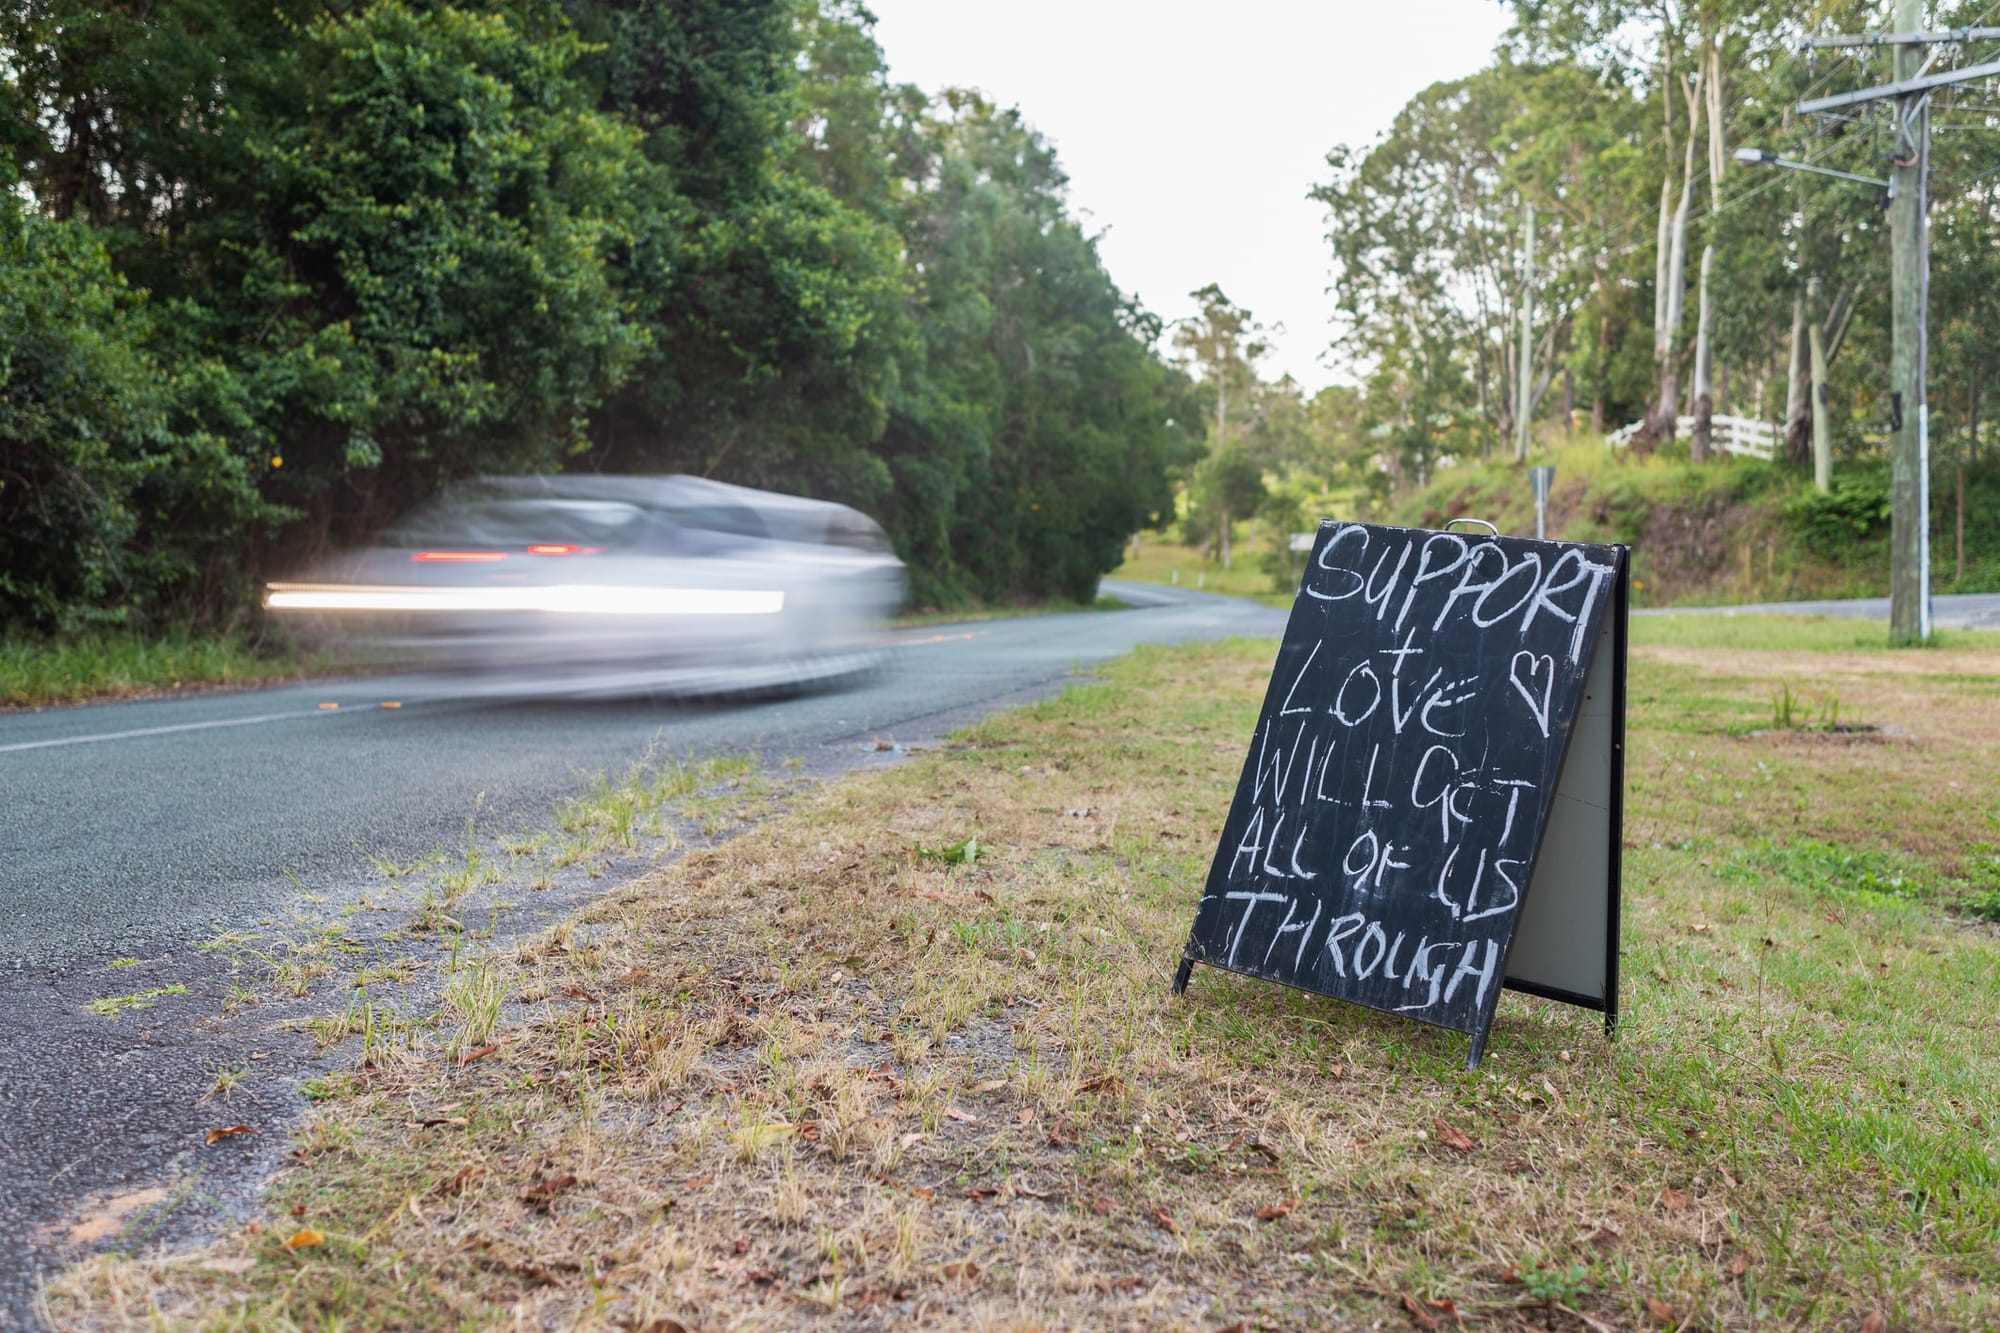 SUPPORT
+
LOVE ♡
WILL GET
ALL OF US
THROUGH